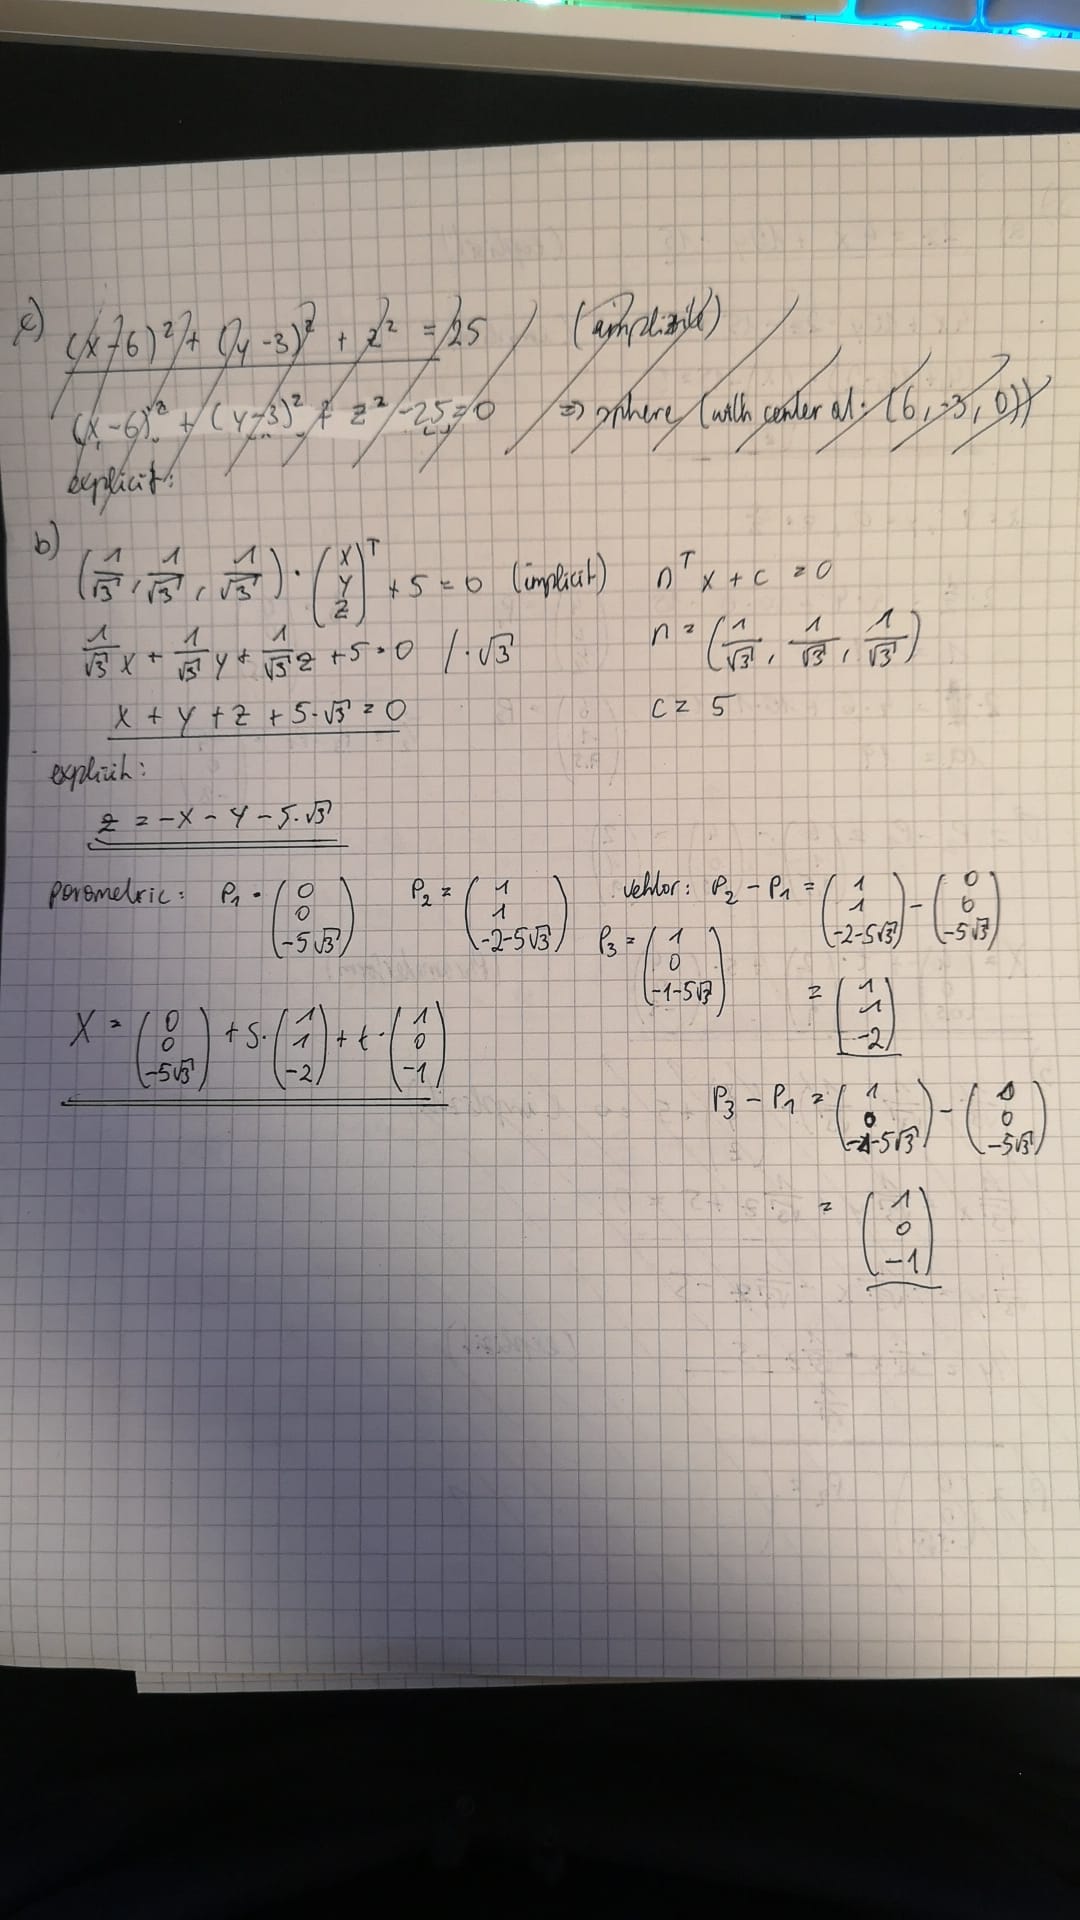 c) (x-6)² + (y-3)² + z² = 25
(x-6)² + (y-3)² + z² - 25 = 0 => sphere (with center at: (6, -3, 0))
explicit:
b) (1/√3, 1/√3, 1/√3) · (x y z)ᵀ + 5 = 0 (implicit) nᵀ x + c = 0
1/√3 x + 1/√3 y + 1/√3 z + 5 = 0 / · √3 n = (1/√3, 1/√3, 1/√3)
x + y + z + 5·√3 = 0 c = 5
explizit:
z = -x - y - 5·√3
parametric: P₁ = (0 0 -5√3) P₂ = (1 1 -2-5√3) vektor: P₂ - P₁ = (1 1 -2-5√3) - (0 0 -5√3)
P₃ = (1 0 -1-5√3)
= (1 1 -2)
X = (0 0 -5√3) + s· (1 1 -2) + t· (1 0 -1)
P₃ - P₁ = (1 0 -1-5√3) - (0 0 -5√3)
= (1 0 -1)